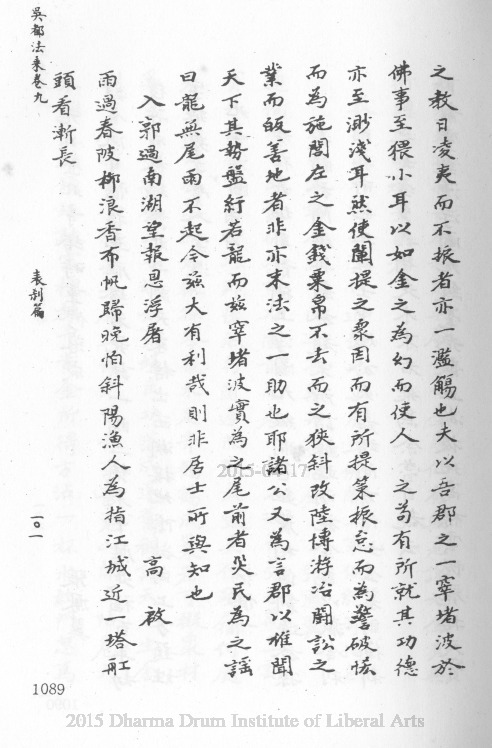 之教日凌夷而不振者亦一濫觴也夫以吾郡之一窣堵波於
佛事至猥小耳以如金之為幻而使人 之苟有所就其功德
亦至渺淺耳然使闡提之衆因而有所提策振怠而為警破慳
而為施閭左之金錢粟帛不去而之狹斜改陸博游冶鬪訟之
業而皈善地者非亦末法之一助也耶諸公又為言郡以雄聞
天下其勢盤紆若龍而茲窣堵波實為之尾前者災民為之謠
曰龍無尾雨不起今茲大有利哉則非居士所與知也
入郭過南湖望報恩浮屠 高啟
雨過春陂柳浪香布帆歸晚怕斜陽漁人為指江城近一塔舡
頭看漸長
吳都法乘卷九
表剎篇
一〇一
1089
2015 Dharma Drum Institute of Liberal Arts